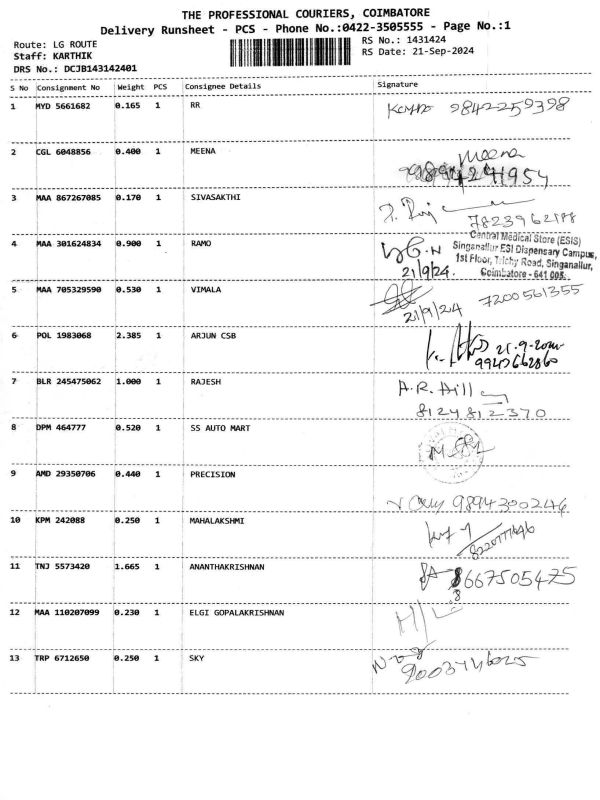 THE PROFESSIONAL COURIERS, COIMBATORE
Delivery Runsheet - PCS - Phone No.:0422-3505555 - Page No.:1
Route: LG ROUTE
Staff: KARTHIK
DRS No.: DCJB143142401
RS No.: 1431424
RS Date: 21-Sep-2024
S No Consignment No Weight PCS Consignee Details Signature
1 MYD 5661682 0.165 1 RR 9842259398
2 CGL 6048856 0.400 1 MEENA Meena
3 MAA 867267085 0.170 1 SIVASAKTHI
4 MAA 301624834 0.900 1 RAMO 21/9/24.
Central Medical Store (ESIS)
Singanallur ESI Dispensary Campus,
1st Floor, Trichy Road, Singanallur,
Coimbatore - 641 005.
5 MAA 705329590 0.530 1 VIMALA 21/9/24 7200561355
6 POL 1983068 2.385 1 ARJUN CSB
7 BLR 245475062 1.000 1 RAJESH A.R. Hill
8124812370
8 DPM 464777 0.520 1 SS AUTO MART
9 AMD 29350706 0.440 1 PRECISION 9894300246
10 KPM 242088 0.250 1 MAHALAKSHMI
11 TNJ 5573420 1.665 1 ANANTHAKRISHNAN 8667505475
12 MAA 110207099 0.230 1 ELGI GOPALAKRISHNAN
13 TRP 6712650 0.250 1 SKY